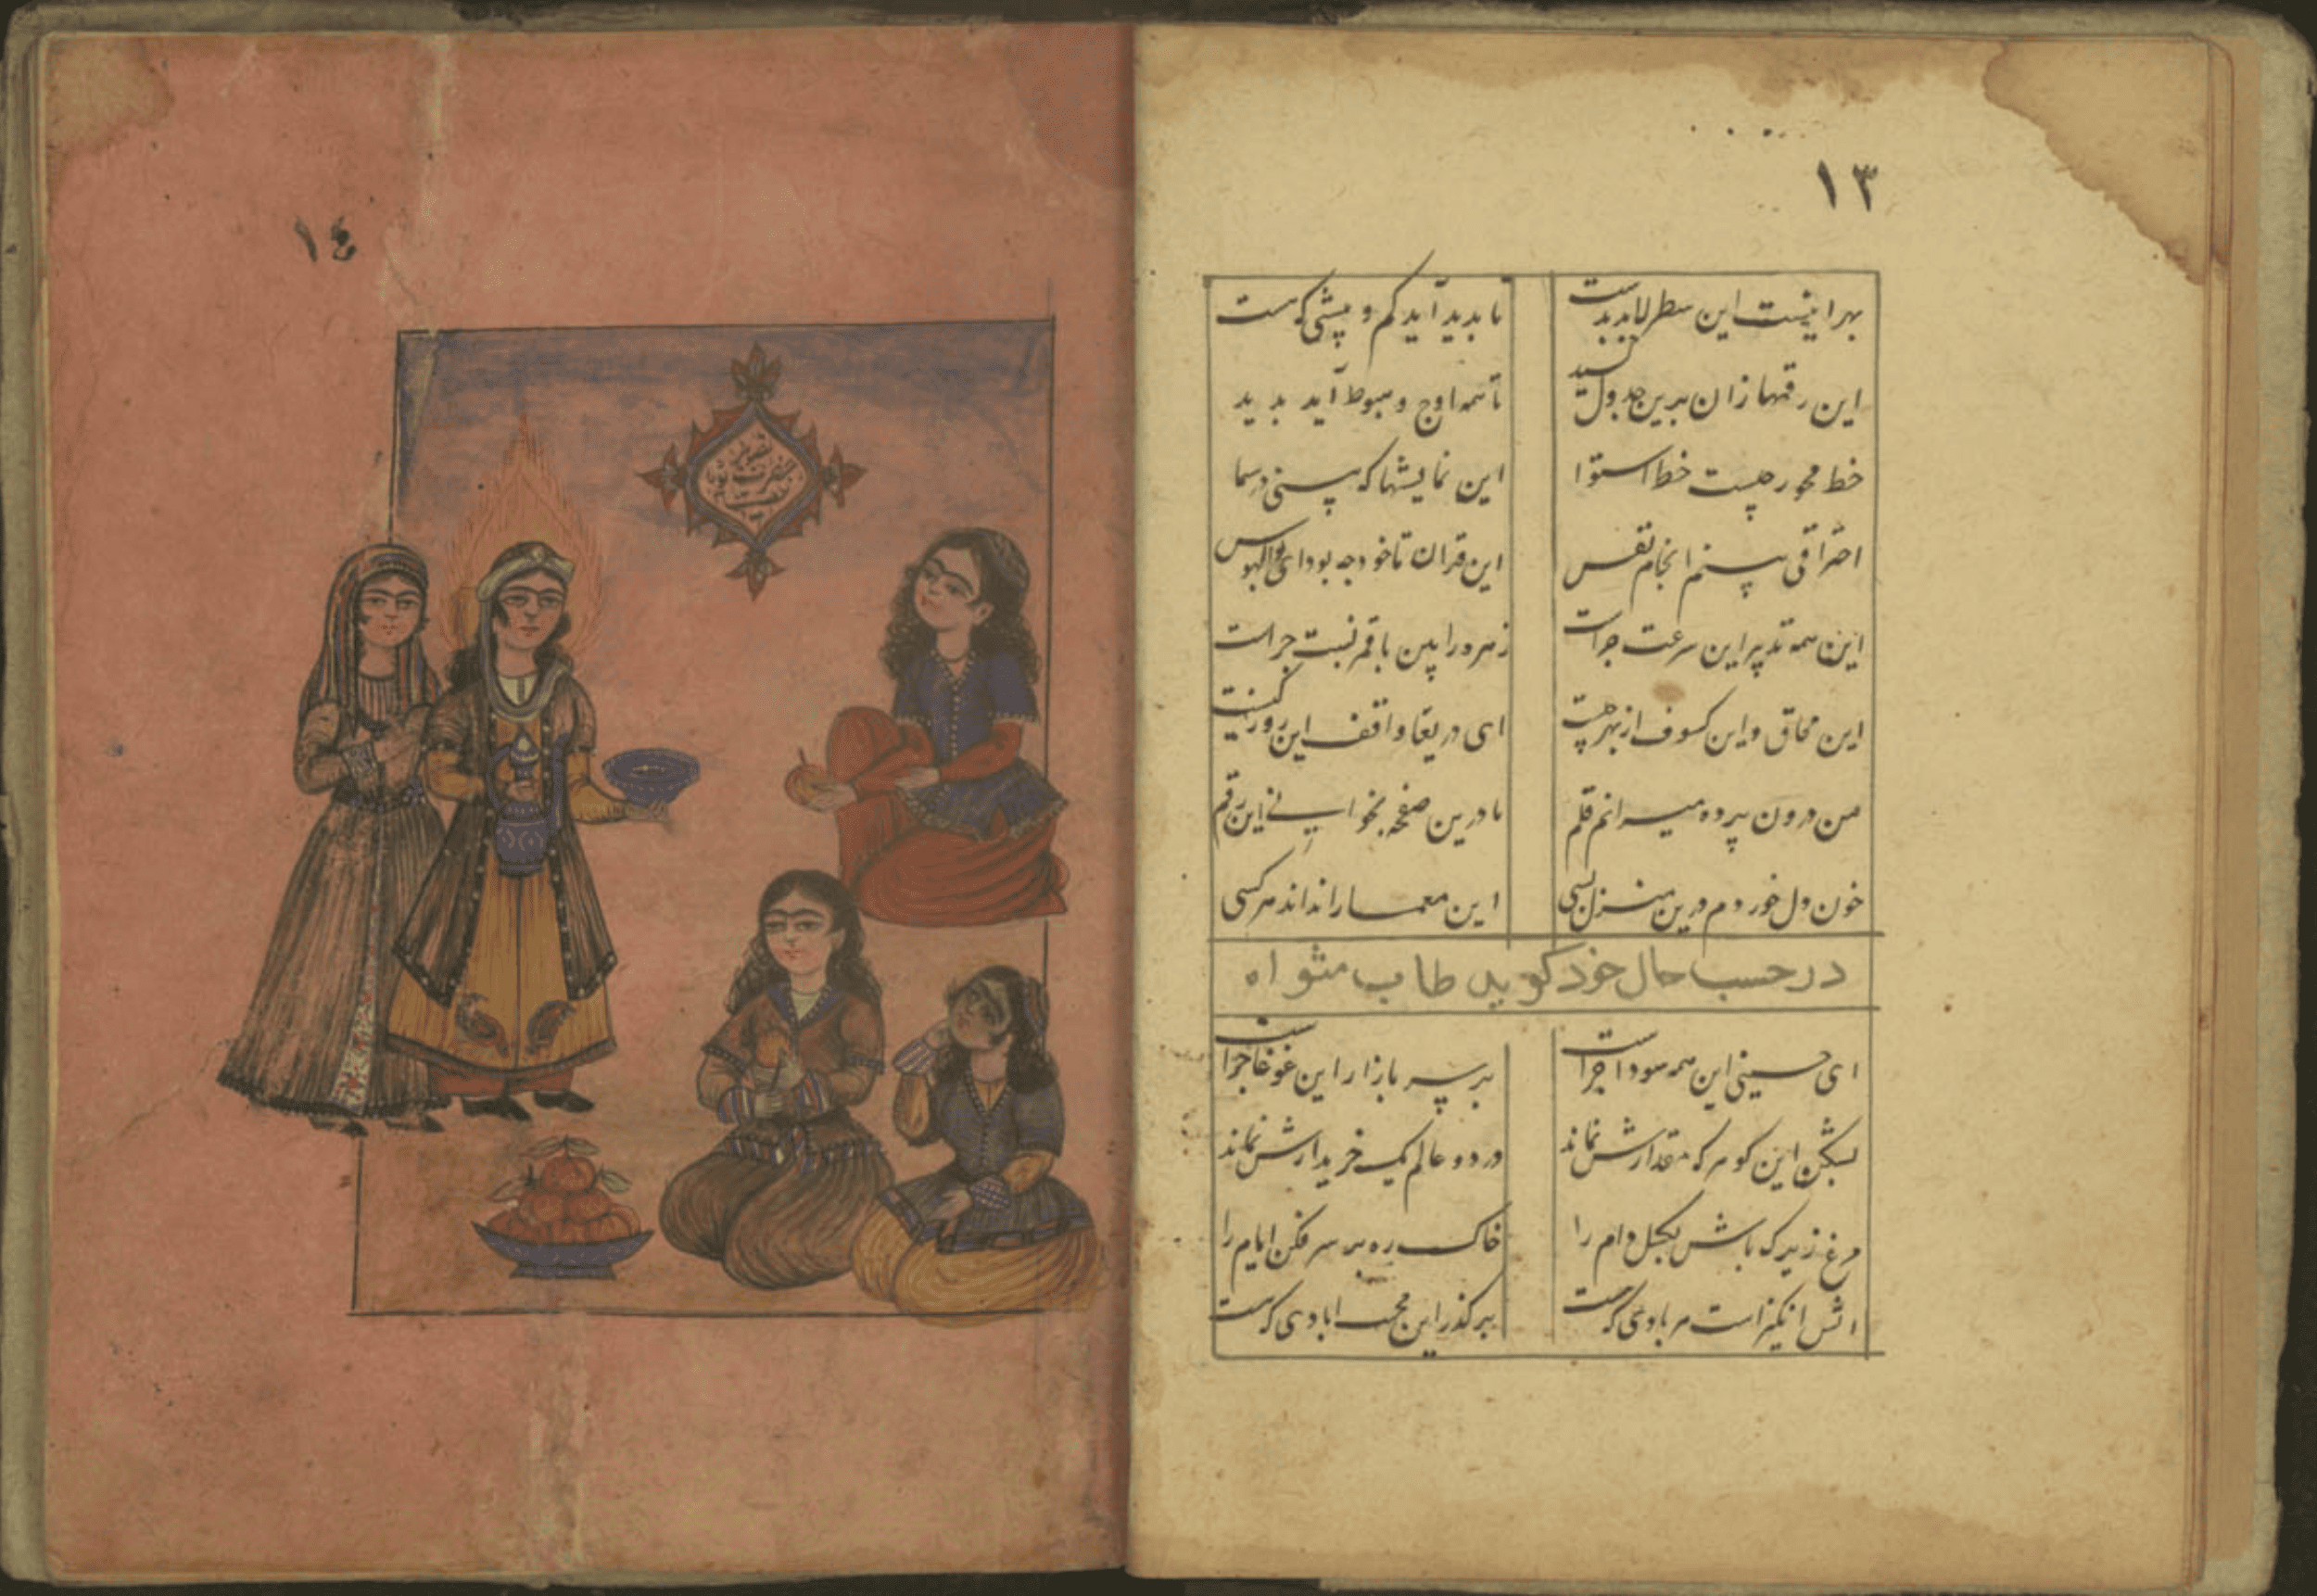 ١٣
بهر اینست این سطرلاب بدست تا بدید آید کم و بیشی که هست
این رقمها زان برین جدول کشید تا همه اوج و هبوط آید بدید
خط محور چیست خط استوا این نمایشها که بینی در سما
احتراقی بینم انجام نفس این قران تا خود چه بود ای بوالهوس
این همه تدبیر این سرعت چراست زهره را بین با قمر نسبت چراست
این محاق و این کسوف از بهر چیست ای دریغا واقف این روز کیست
من درون پرده میرانم قلم تا درین صفحه بخوانی این رقم
خون دل خوردم درین منزل بسی این معما را نداند هر کسی
در حسب حال خود کوید طاب مثواه
ای حسینی این همه سودا چراست بر سر بازار این غوغا چراست
بشکن این کوهر که مقدارش نماند در دو عالم یک خریدارش نماند
مرغ زیرک باش بکسل دام را خاک ره بر سر فکن ایام را
اتش انکیز است هر بادی که هست بر کذر این محنت ابادی که هست
١٤
تصویر
حضرت